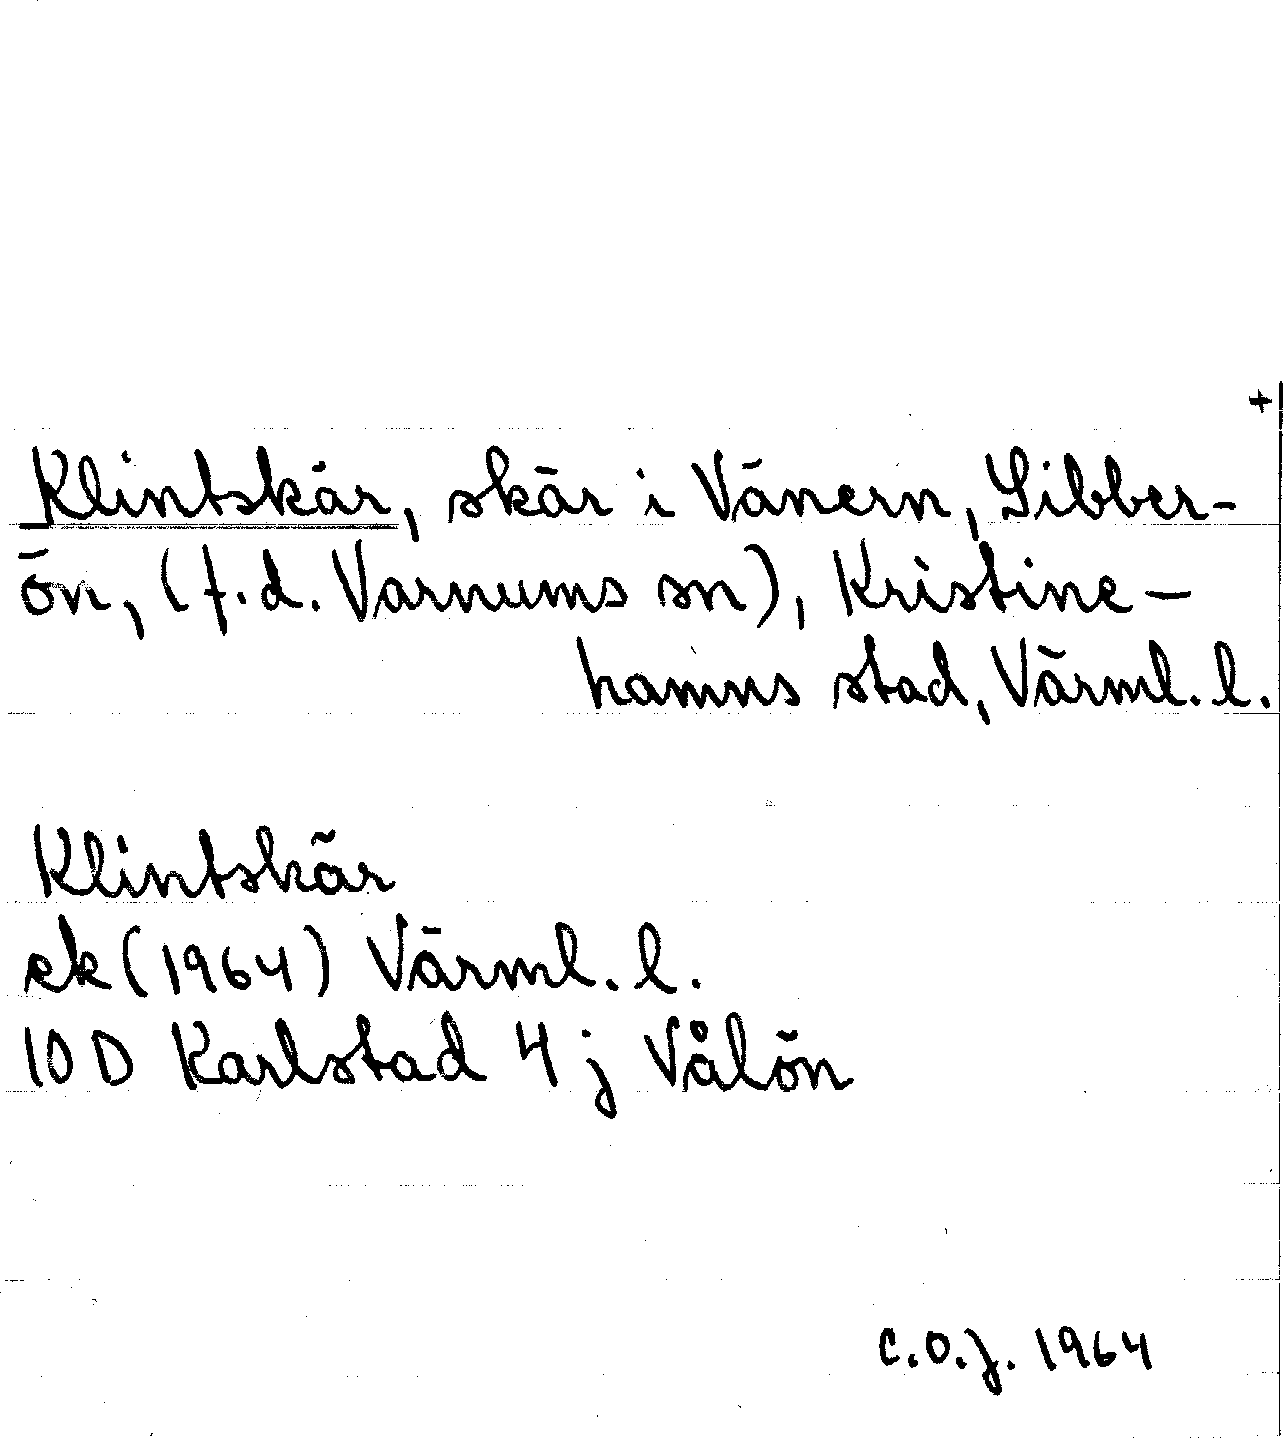 +
Klintskär, skär i Vänern, Sibber-
ön, (f.d. Varnums sn), Kristine-
hamns stad, Värml. l.
Klintskär
ek (1964) Värml. l.
10 D Karlstad 4 j Vålön
C.O.J. 1964